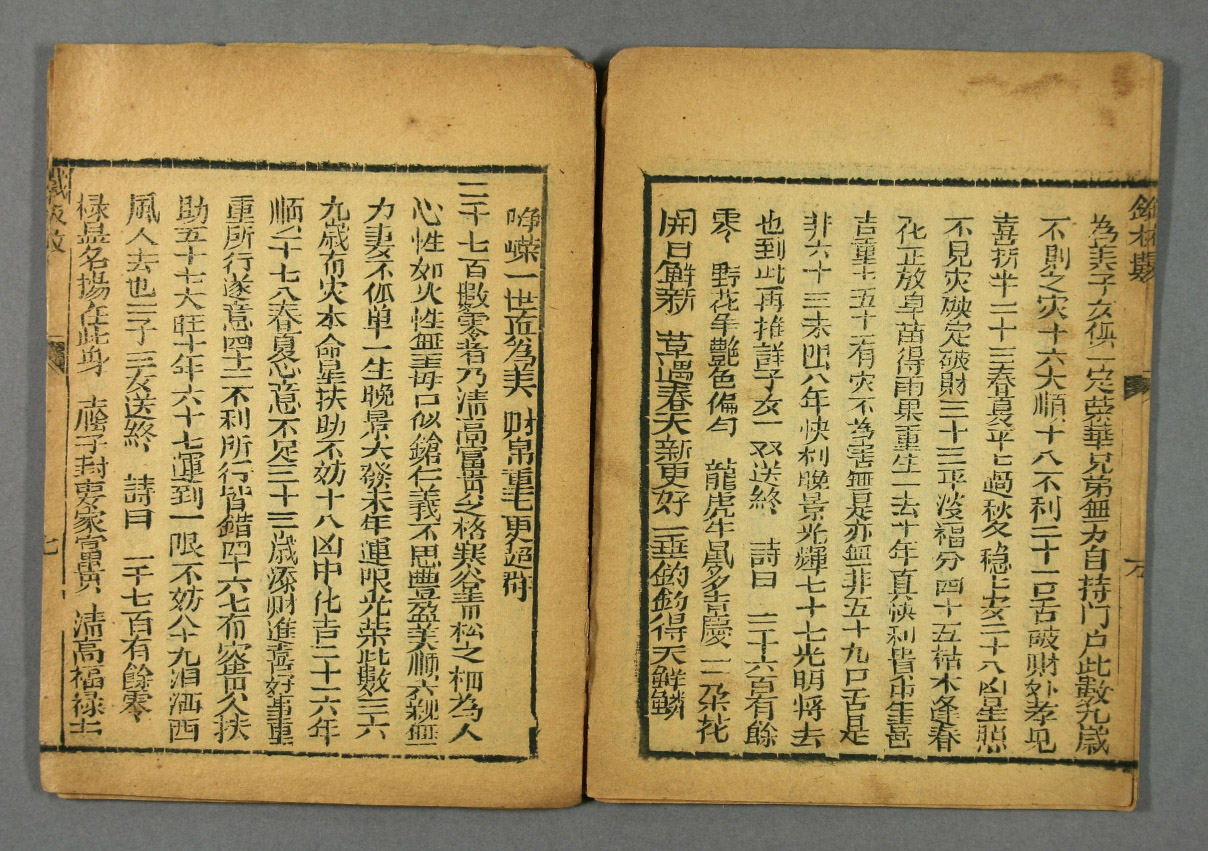 為美子女俱一定榮華兄弟無力自持門户此数九歲
不則之灾十六大順十八不利二十一口舌破財外孝見
喜折半二十三春夏平七過秋冬穩上安二十八凶星照
不見灾殃定破財三十三平没福分四十五枯木逢春
花正放草苗得雨果重生一去十年真快利貴弟生喜
吉重七五十一有灾不為害無是亦無非五十九口舌是
非六十三未四八年快利晚景光輝七十七光明將去
也到此再推詳子女一双送終 詩曰 二千六百有餘
零 野花年艷色偏勻 龍虎牛鼠多吉慶 一朵花
開日觧新 草遇春天新更好 一垂釣釣得天鮮鱗
崢嶸一世應為美 財帛重七更超群
三千七百数零者乃清高富貴之格寒谷青松之柵為人
心性如火性無毒口似鎗仁義不思豊盈美順六親無
力妻不孤单一生晚景大發未年運限光荣此數三六
九歲有灾本命星扶助不妨十八凶中化吉二十二六年
順之十七八春夏心意不足三十三歲添财進喜好事重
重所行遂意四十二不利所行皆錯四十六七有灾貴人扶
助五十七大旺十年六十七運到一限不妨八十九泪洒西
風人去也二子三女送終 詩曰 一千七百有餘零
禄显名揚在此身 廕子封妻家富貴 清高福禄士
七